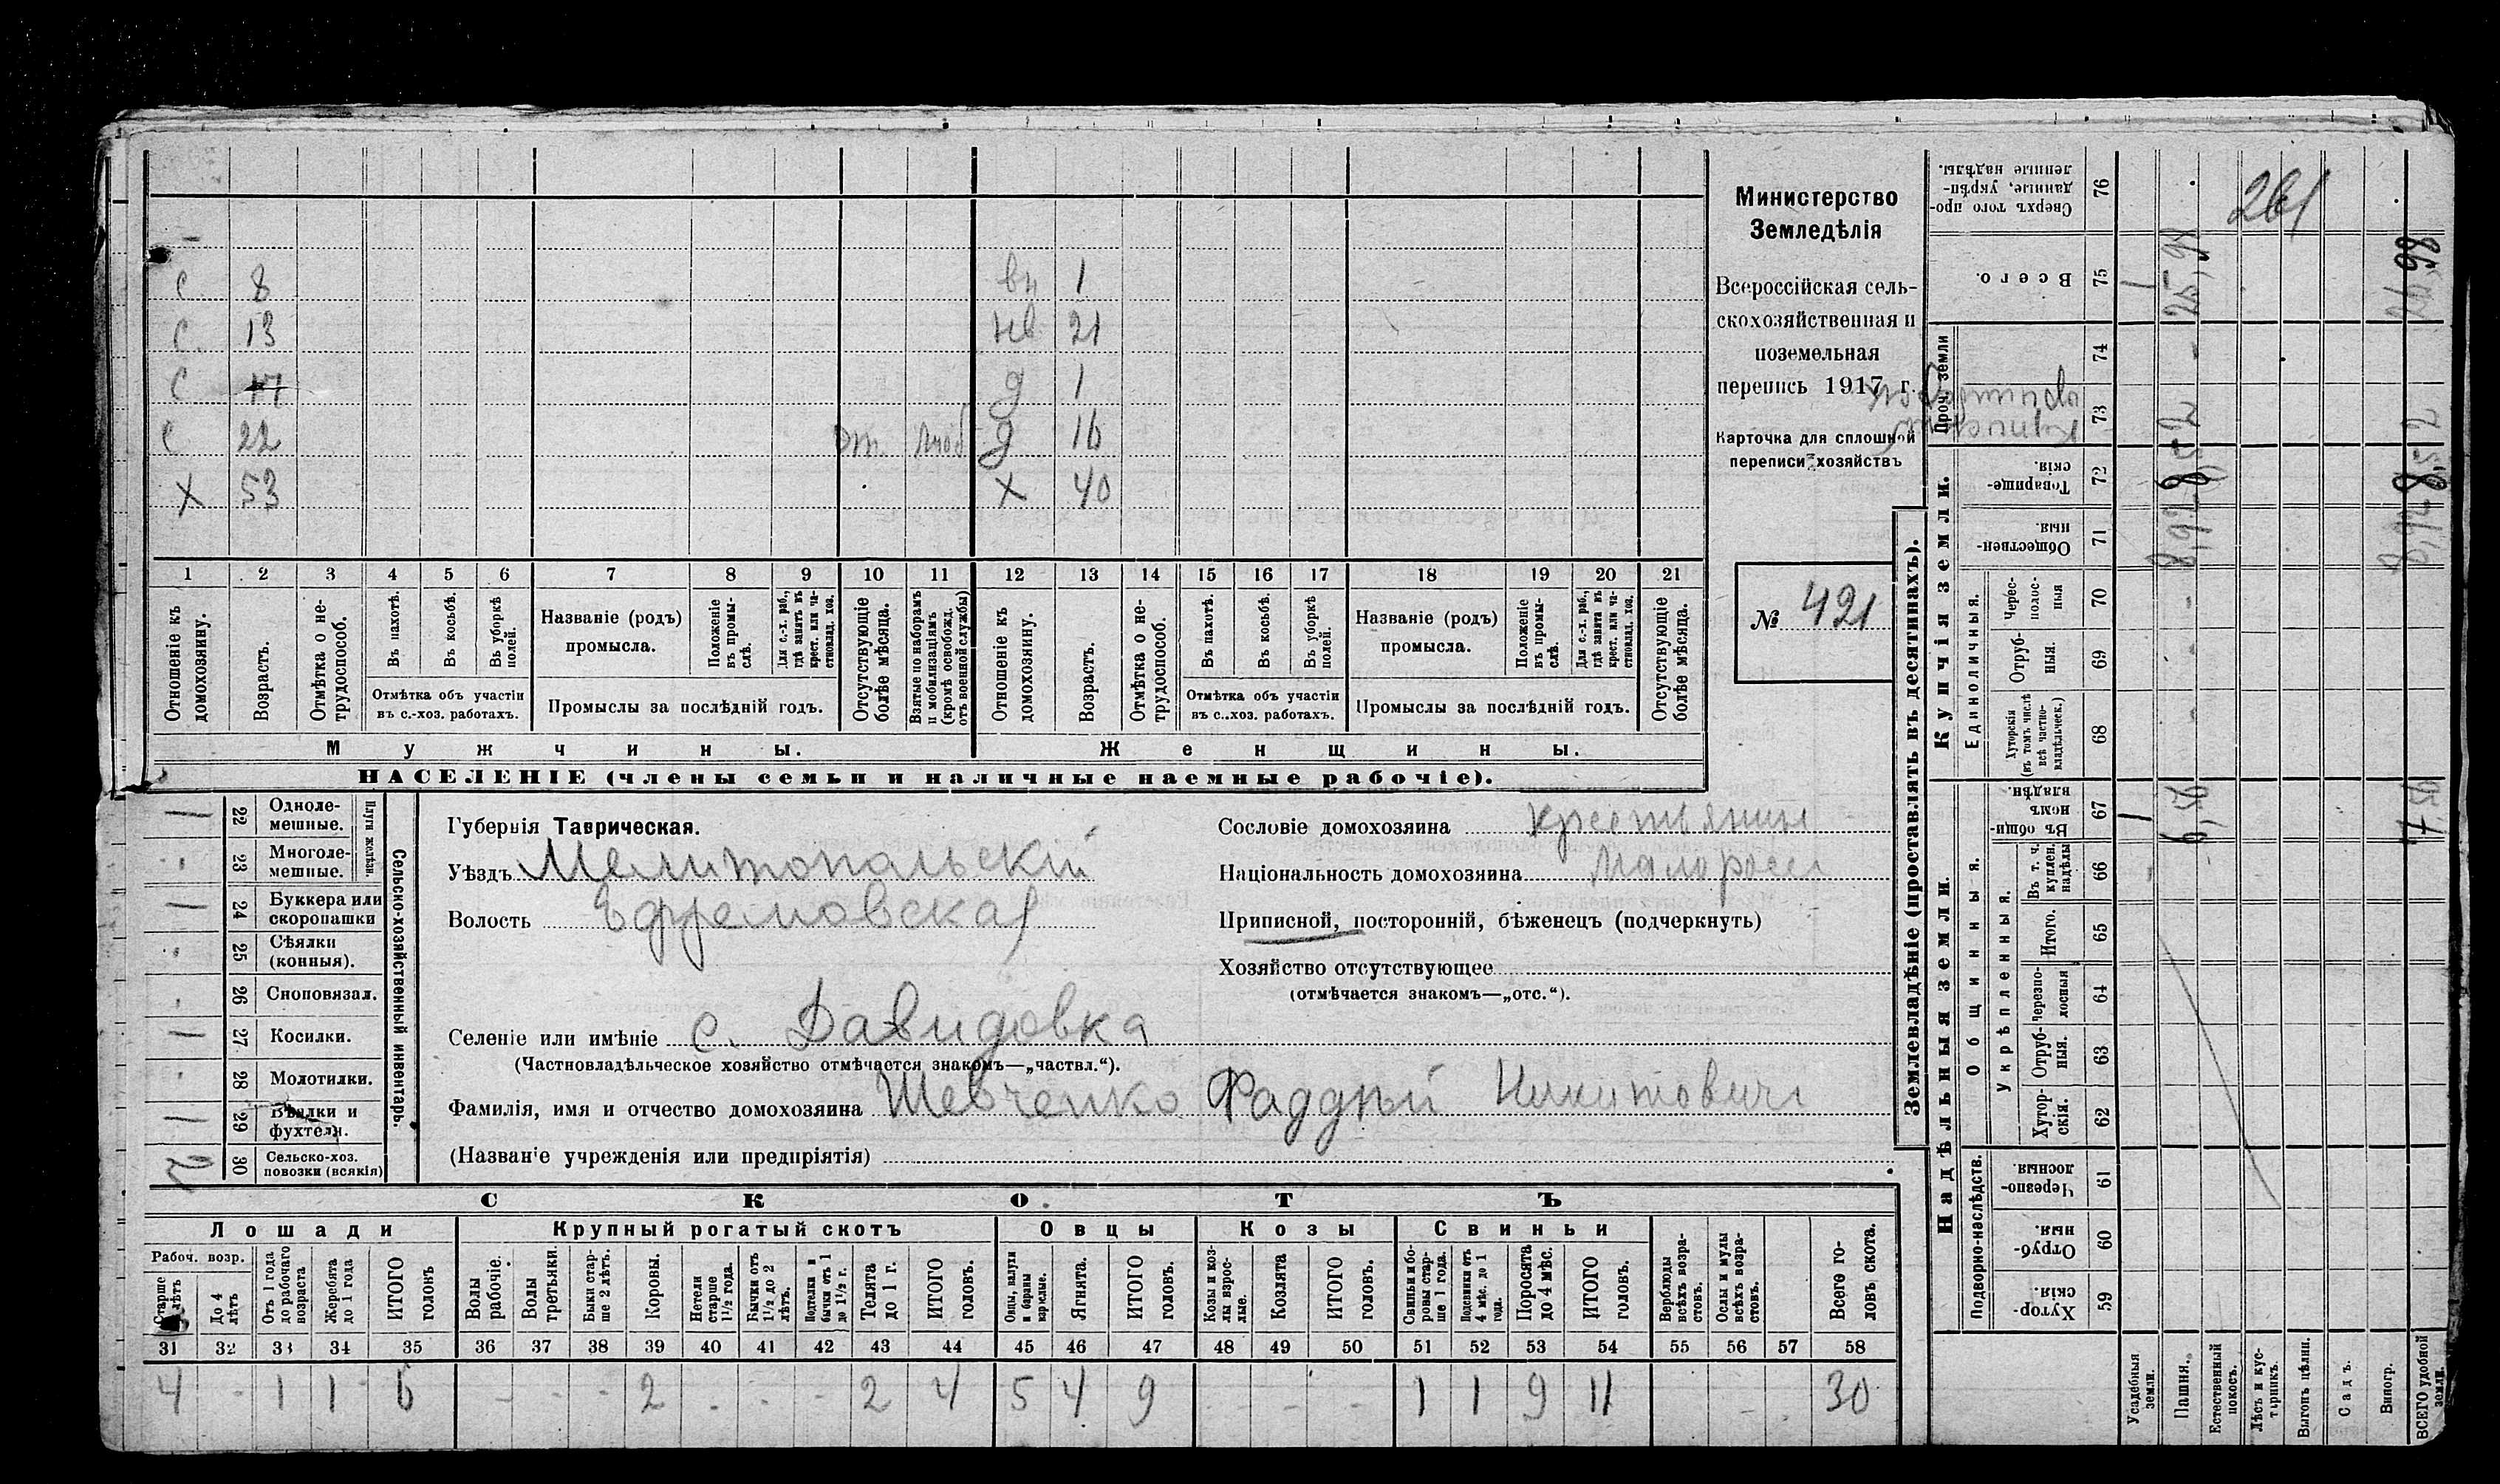 261
с 8 вн 1
с 13 нв 21
с 17 д 1
с 22 от. моб д 16
х 53 х 40
1 2 3 4 5 6 7 8 9 10 11 12 13 14 15 16 17 18 19 20 21
Отношеніе къ домохозяину.
Возрастъ.
Отмѣтка о не-трудоспособ.
Въ пахотѣ.
Въ косьбѣ.
Въ уборкѣ полей.
Отмѣтка объ участіи
въ с.-хоз. работахъ.
Названіе (родъ)
промысла.
Положеніе въ промы-слѣ.
Для с.-х. раб., гдѣ занятъ въ крест. или ча-стновлад. хоз.
Промыслы за послѣдній годъ.
Отсутствующіе болѣе мѣсяца.
Взятые по наборамъ и мобилизаціямъ (кромѣ освобожд. отъ военной службы)
Отношеніе къ домохозяину.
Возрастъ.
Отмѣтка о не-трудоспособ.
Въ пахотѣ.
Въ косьбѣ.
Въ уборкѣ полей.
Отмѣтка объ участіи
въ с.-хоз. работахъ.
Названіе (родъ)
промысла.
Положеніе въ промы-слѣ.
Для с.-х. раб., гдѣ занята въ крест. или ча-стновлад. хоз.
Промыслы за послѣдній годъ.
Отсутствующіе болѣе мѣсяца.
Мужчины. Женщины.
НАСЕЛЕНІЕ (члены семьи и наличные наемные рабочіе).
Министерство
Земледѣлія
Всероссійская сель-
скохозяйственная и
поземельная
перепись 1917 г.
Карточка для сплошной
переписи хозяйствъ
№ 421
Сельско-хозяйственный инвентарь.
Плуги желѣзн.
1 22 Одноле-мешные.
23 Многоле-мешные.
1 24 Буккера или скоропашки
25 Сѣялки (конныя).
26 Сноповязал.
1 27 Косилки.
28 Молотилки.
1 29 Вѣялки и фухтели.
2 30 Сельско-хоз. повозки (всякія)
Губернія Таврическая.
Уѣздъ Мелитопольскій
Волость Ефремовская
Селеніе или имѣніе с. Давидовка
(Частновладѣльческое хозяйство отмѣчается знакомъ—„частвл.“).
Фамилія, имя и отчество домохозяина Шевченко Фаддѣй Никитовичъ
(Названіе учрежденія или предпріятія)
Сословіе домохозяина крестьянин
Національность домохозяина Малоросс
Приписной, посторонній, бѣженецъ (подчеркнуть)
Хозяйство отсутствующее
(отмѣчается знакомъ—„отс.“).
СКОТЪ
Лошади Крупный рогатый скотъ Овцы Козы Свиньи
Рабоч. возр.
До 4 лѣтъ
Отъ 1 года до рабочаго возраста
Жеребята до 1 года
ИТОГО головъ
Волы рабочіе.
Волы третьяки.
Быки стар-ше 2 лѣтъ.
Коровы.
Нетели старше 1½ года.
Бычки отъ 1½ до 2 лѣтъ.
Подтелки и бычки отъ 1 до 1½ г.
Телята до 1 г.
ИТОГО головъ.
Овцы, валухи и бараны взрослые.
Ягнята.
ИТОГО головъ.
Козы и коз-лы взрос-лые.
Козлята
ИТОГО головъ.
Свиньи и бо-ровы стар-ше 1 года.
Подсвинки отъ 4 мѣс. до 1 года.
Поросята до 4 мѣс.
ИТОГО головъ.
Верблюды всѣхъ возра-стовъ.
Ослы и мулы всѣхъ возра-стовъ.
Всего го-ловъ скота.
31 32 33 34 35 36 37 38 39 40 41 42 43 44 45 46 47 48 49 50 51 52 53 54 55 56 57 58
4 - 1 1 6 - - - 2 - - - 2 4 5 4 9 - - - 1 1 9 11 - - 30
Землевладѣніе (проставлять въ десятинахъ).
Проч. земли
Купчія земли.
Единоличныя.
Надѣльныя земли.
Общинныя.
Укрѣпленныя.
Подворно-наслѣдств.
Сверхъ того про-данные, укрѣп-ленные надѣлы. 76
Всего. 75 1 25,98 26,98
74
73
Товарище-скія. 72
Обществен-ныя 71
Черес-полос-ныя 70
Отруб-ныя. 69
Хуторскія (въ томъ числѣ всѣ частно-владѣльческ.) 68
Въ общи-номъ владѣн. 67 1
Въ т. ч. куплен. надѣлы 66
Итого. 65
Черезпо-лосныя 64
Отруб-ныя. 63
Хутор-скія. 62
Черезпо-лосныя 61
Отруб-ныя. 60
Хутор-скія. 59
Усадебныя земли.
Пашня.
Естественный покосъ.
Лѣсъ и кус-тарникъ.
Выгонъ цѣлин.
Садъ.
Виногр.
ВСЕГО удобной земли.